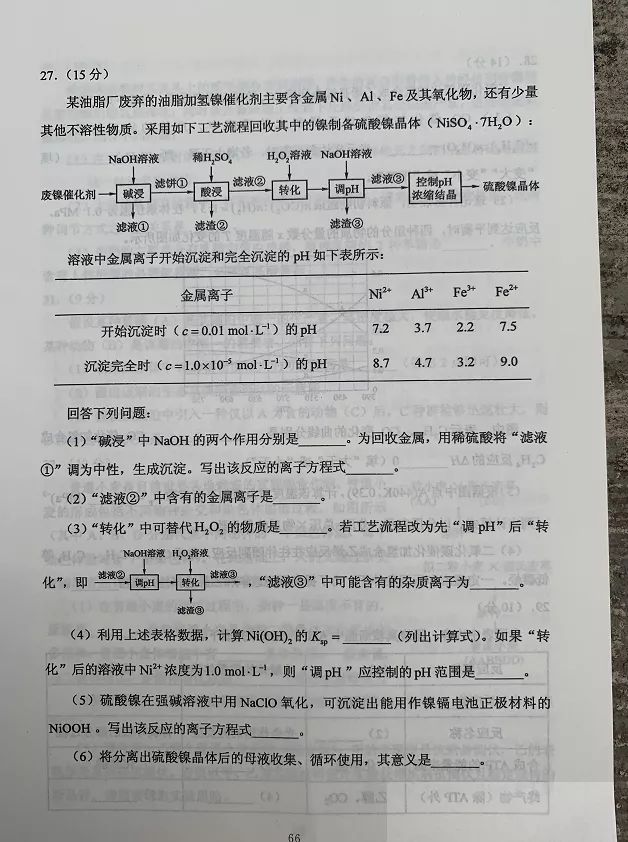 27.（15 分）
某油脂厂废弃的油脂加氢镍催化剂主要含金属 Ni 、 Al 、 Fe 及其氧化物，还有少量
其他不溶性物质。采用如下工艺流程回收其中的镍制备硫酸镍晶体（NiSO₄ · 7H₂O）：
NaOH溶液 稀H₂SO₄ H₂O₂溶液 NaOH溶液
废镍催化剂 碱浸 滤饼① 酸浸 滤液② 转化 调pH 滤液③ 控制pH 浓缩结晶 硫酸镍晶体
滤液① 滤渣② 滤渣③
溶液中金属离子开始沉淀和完全沉淀的 pH 如下表所示：
金属离子 Ni²⁺ Al³⁺ Fe³⁺ Fe²⁺
开始沉淀时（c = 0.01 mol·L⁻¹）的 pH 7.2 3.7 2.2 7.5
沉淀完全时（c = 1.0×10⁻⁵ mol·L⁻¹）的 pH 8.7 4.7 3.2 9.0
回答下列问题：
（1）“碱浸”中 NaOH 的两个作用分别是______。为回收金属，用稀硫酸将“滤液
①”调为中性，生成沉淀。写出该反应的离子方程式______。
（2）“滤液②”中含有的金属离子是______。
（3）“转化”中可替代 H₂O₂ 的物质是______。若工艺流程改为先“调 pH”后“转
NaOH溶液 H₂O₂溶液
化”，即 滤液② 调pH 转化 滤液③ ，“滤液③”中可能含有的杂质离子为______。
滤渣③
（4）利用上述表格数据，计算 Ni(OH)₂ 的 Ksp = ______（列出计算式）。如果“转
化”后的溶液中 Ni²⁺ 浓度为 1.0 mol·L⁻¹，则“调 pH ”应控制的 pH 范围是______。
（5）硫酸镍在强碱溶液中用 NaClO 氧化，可沉淀出能用作镍镉电池正极材料的
NiOOH 。写出该反应的离子方程式______。
（6）将分离出硫酸镍晶体后的母液收集、循环使用，其意义是______。
66